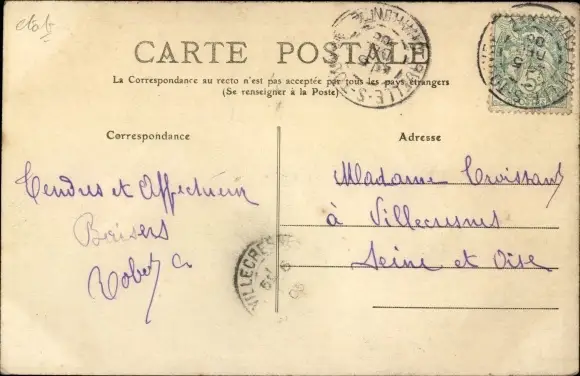 CARTE POSTALE
La Correspondance au recto n'est pas acceptée par tous les pays étrangers
(Se renseigner à la Poste)
Correspondance
Adresse
Tendres et Affectueux
Baisers
Robert C.
Madame Croissant
à Villecresnes
Seine et Oise
VILLECRESNES